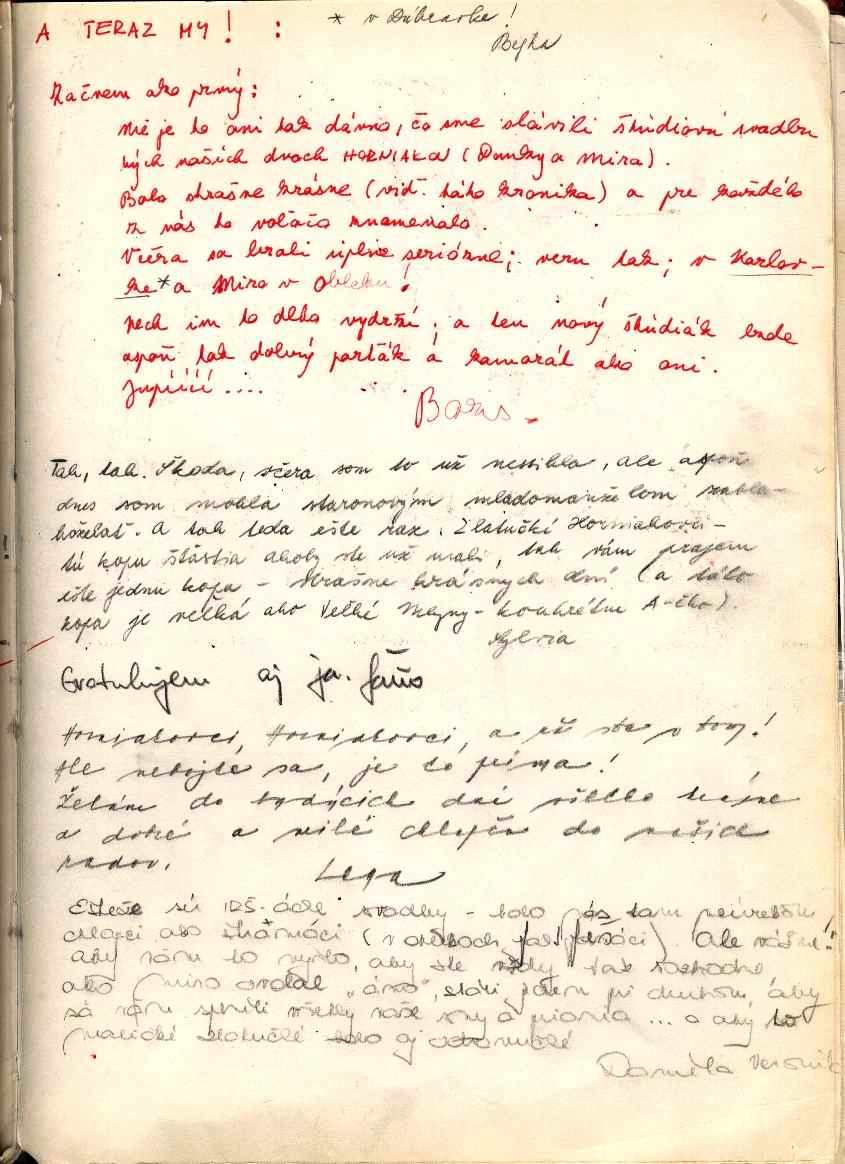 A TERAZ MY! :
* v Dúbravke!
Začnem ako prvý:
Nie je to ani tak dávno, čo sme slávili štúdiovú svadbu
tých našich dvoch HORNIAKOV (Danky a Mira).
Bolo strašne krásne (viď. táto kronika) a pre každého
z nás to voľačo znamenalo.
Včera sa brali úplne seriózne; veru tak; v Karlov-
ke* a Miro v obleku!
Nech im to dlho vydrží, a ten nový štúdiák bude
aspoň tak dobrý parťák a kamarát ako oni.
Jupíííí....
Boris
Tak, tak. Škoda, včera som to už nestihla, ale aspoň
dnes som mohla staronovým mladomanželom zabla-
hoželať. A tak teda ešte raz. Zlatučkí Horniakovci -
tú kopu šťastia akoby ste už mali, tak vám prajem
ešte jednu kopu - strašne krásnych dní (a táto
kopa je veľká ako Veľké konkrétne A-čko).
Sylvia
Gratulujem aj ja. Jaňo
Horniakovci, Horniakovci, a už ste v tom!
Ale nebojte sa, je to príma!
Želám do budúcich dní všetko krásne
a dobré a milé chlapča do našich
radov.
Ešte sú svadby - bolo nás tam neúrekom,
chlapci ako (v oblekoch ). Ale vážne!
aby vám to vyšlo, aby ste vždy tak rozhodne,
ako Miro ovolal „áno", stáli jeden pri druhom, aby
sa vám splnili všetky vaše sny a priania ... a aby to
maličké zlatučké bolo aj
Daniela